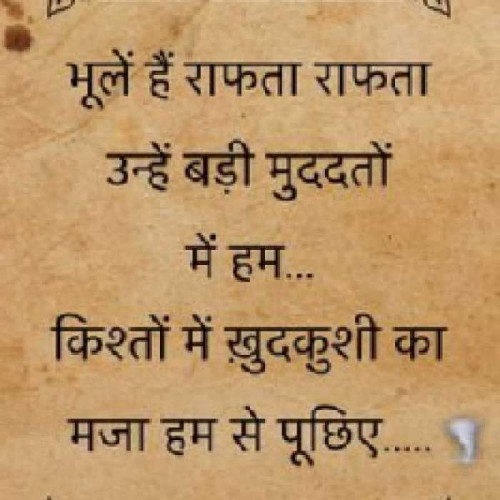 भूलें हैं राफता राफता
उन्हें बड़ी मुददतों
में हम...
किश्तों में ख़ुदकुशी का
मजा हम से पूछिए.....